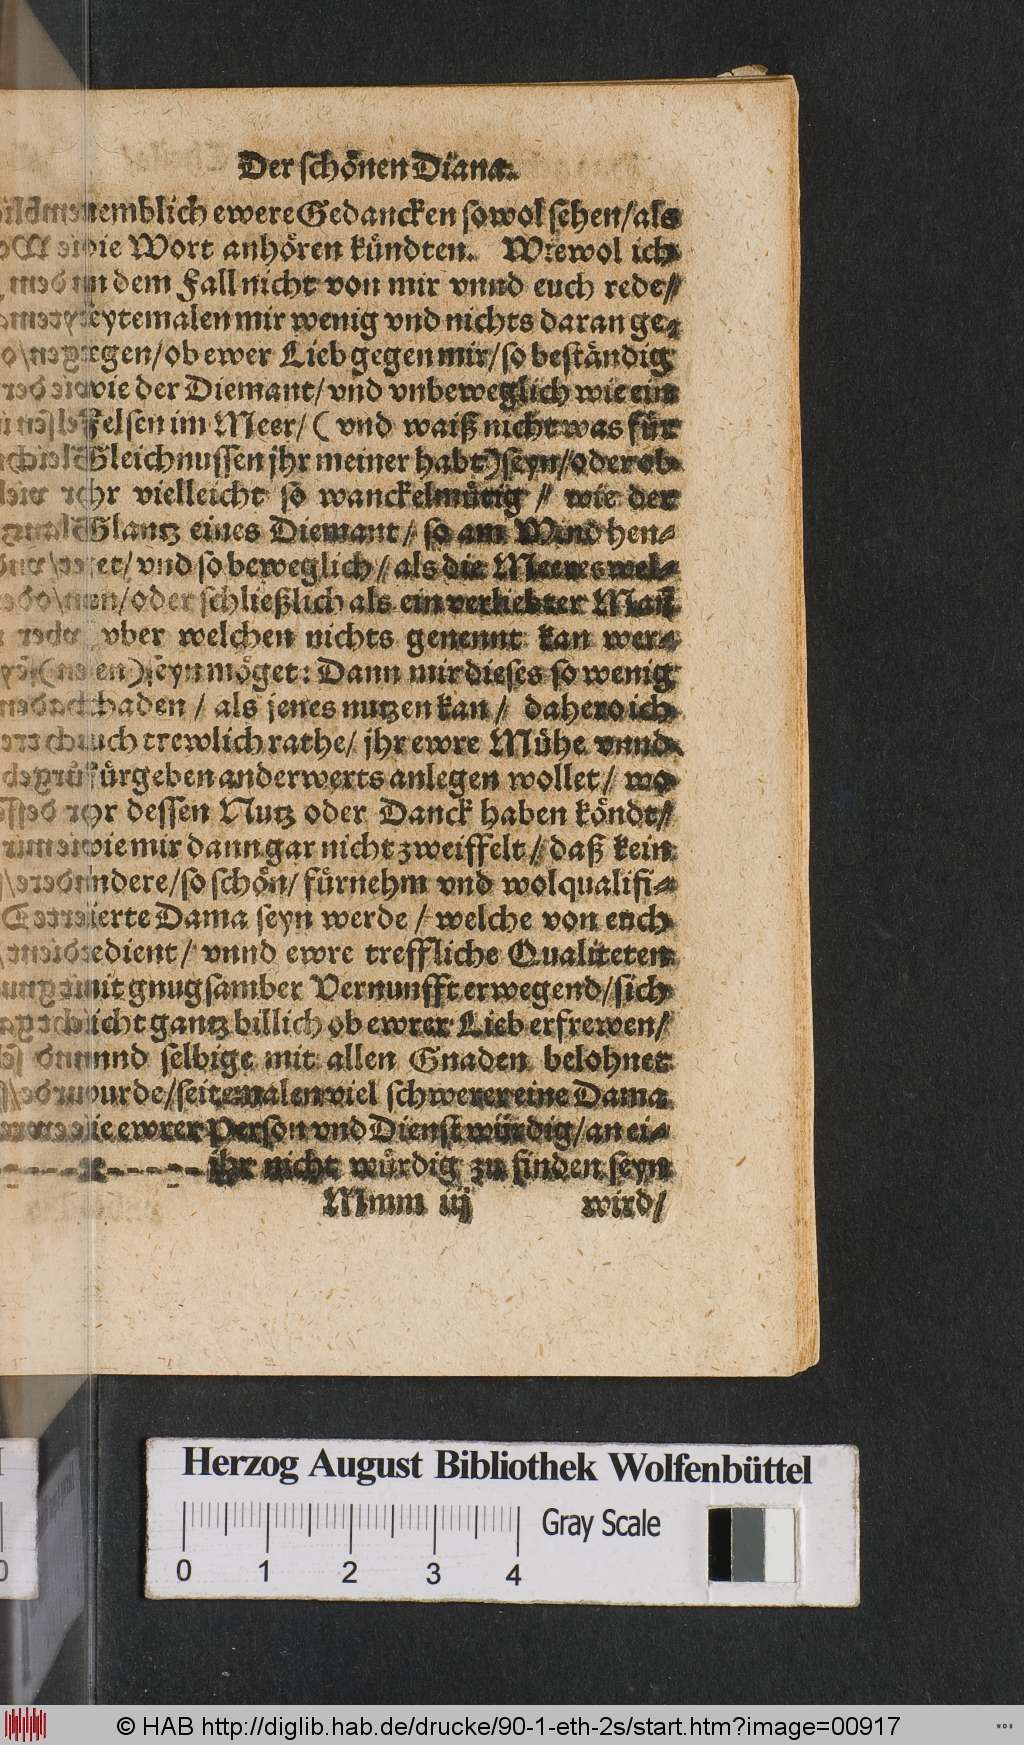 Der schönen Diana.
nemblich ewere Gedancken so wol sehen/als
die Wort anhören kündten. Wiewol ich
in dem Fall nicht von mir vnnd euch rede/
seytemalen mir wenig vnd nichts daran ge-
legen/ob ewer Lieb gegen mir/so beständig
wie der Diemant/vnd vnbeweglich wie ein
Felsen im Meer/(vnd waiß nicht was für
Gleichnussen jhr meiner habt)seyn/oder ob
jhr vielleicht so wanckelmütig/wie der
Glantz eines Diemant/so am Wind hen-
et/vnd so beweglich/als die Meeres wel-
en/oder schließlich als ein verliebter Mañ
vber welchen nichts genennt kan wer-
en)seyn möget: Dann mir dieses so wenig
schaden/als jenes nutzen kan/dahero ich
euch trewlich rathe/jhr ewre Mühe vnnd
fürgeben anderwerts anlegen wollet/wo
jhr dessen Nutz oder Danck haben köndt/
wie mir dann gar nicht zweiffelt/daß kein
andere/so schön/fürnehm vnd wolqualifi-
cierte Dama seyn werde/welche von euch
bedient/vnnd ewre treffliche Qualiteten
mit gnugsamber Vernunfft erwegend/sich
nicht gantz billich ob ewrer Lieb erfrewen/
vnnd selbige mit allen Gnaden belohnet
wurde/seitemalen viel schwerer eine Dama
die ewrer Person vnd Dienst würdig/an ei-
ihr nicht würdig zu finden seyn
Mmm iij wird/
Herzog August Bibliothek Wolfenbüttel
0 1 2 3 4 Gray Scale
© HAB http://diglib.hab.de/drucke/90-1-eth-2s/start.htm?image=00917